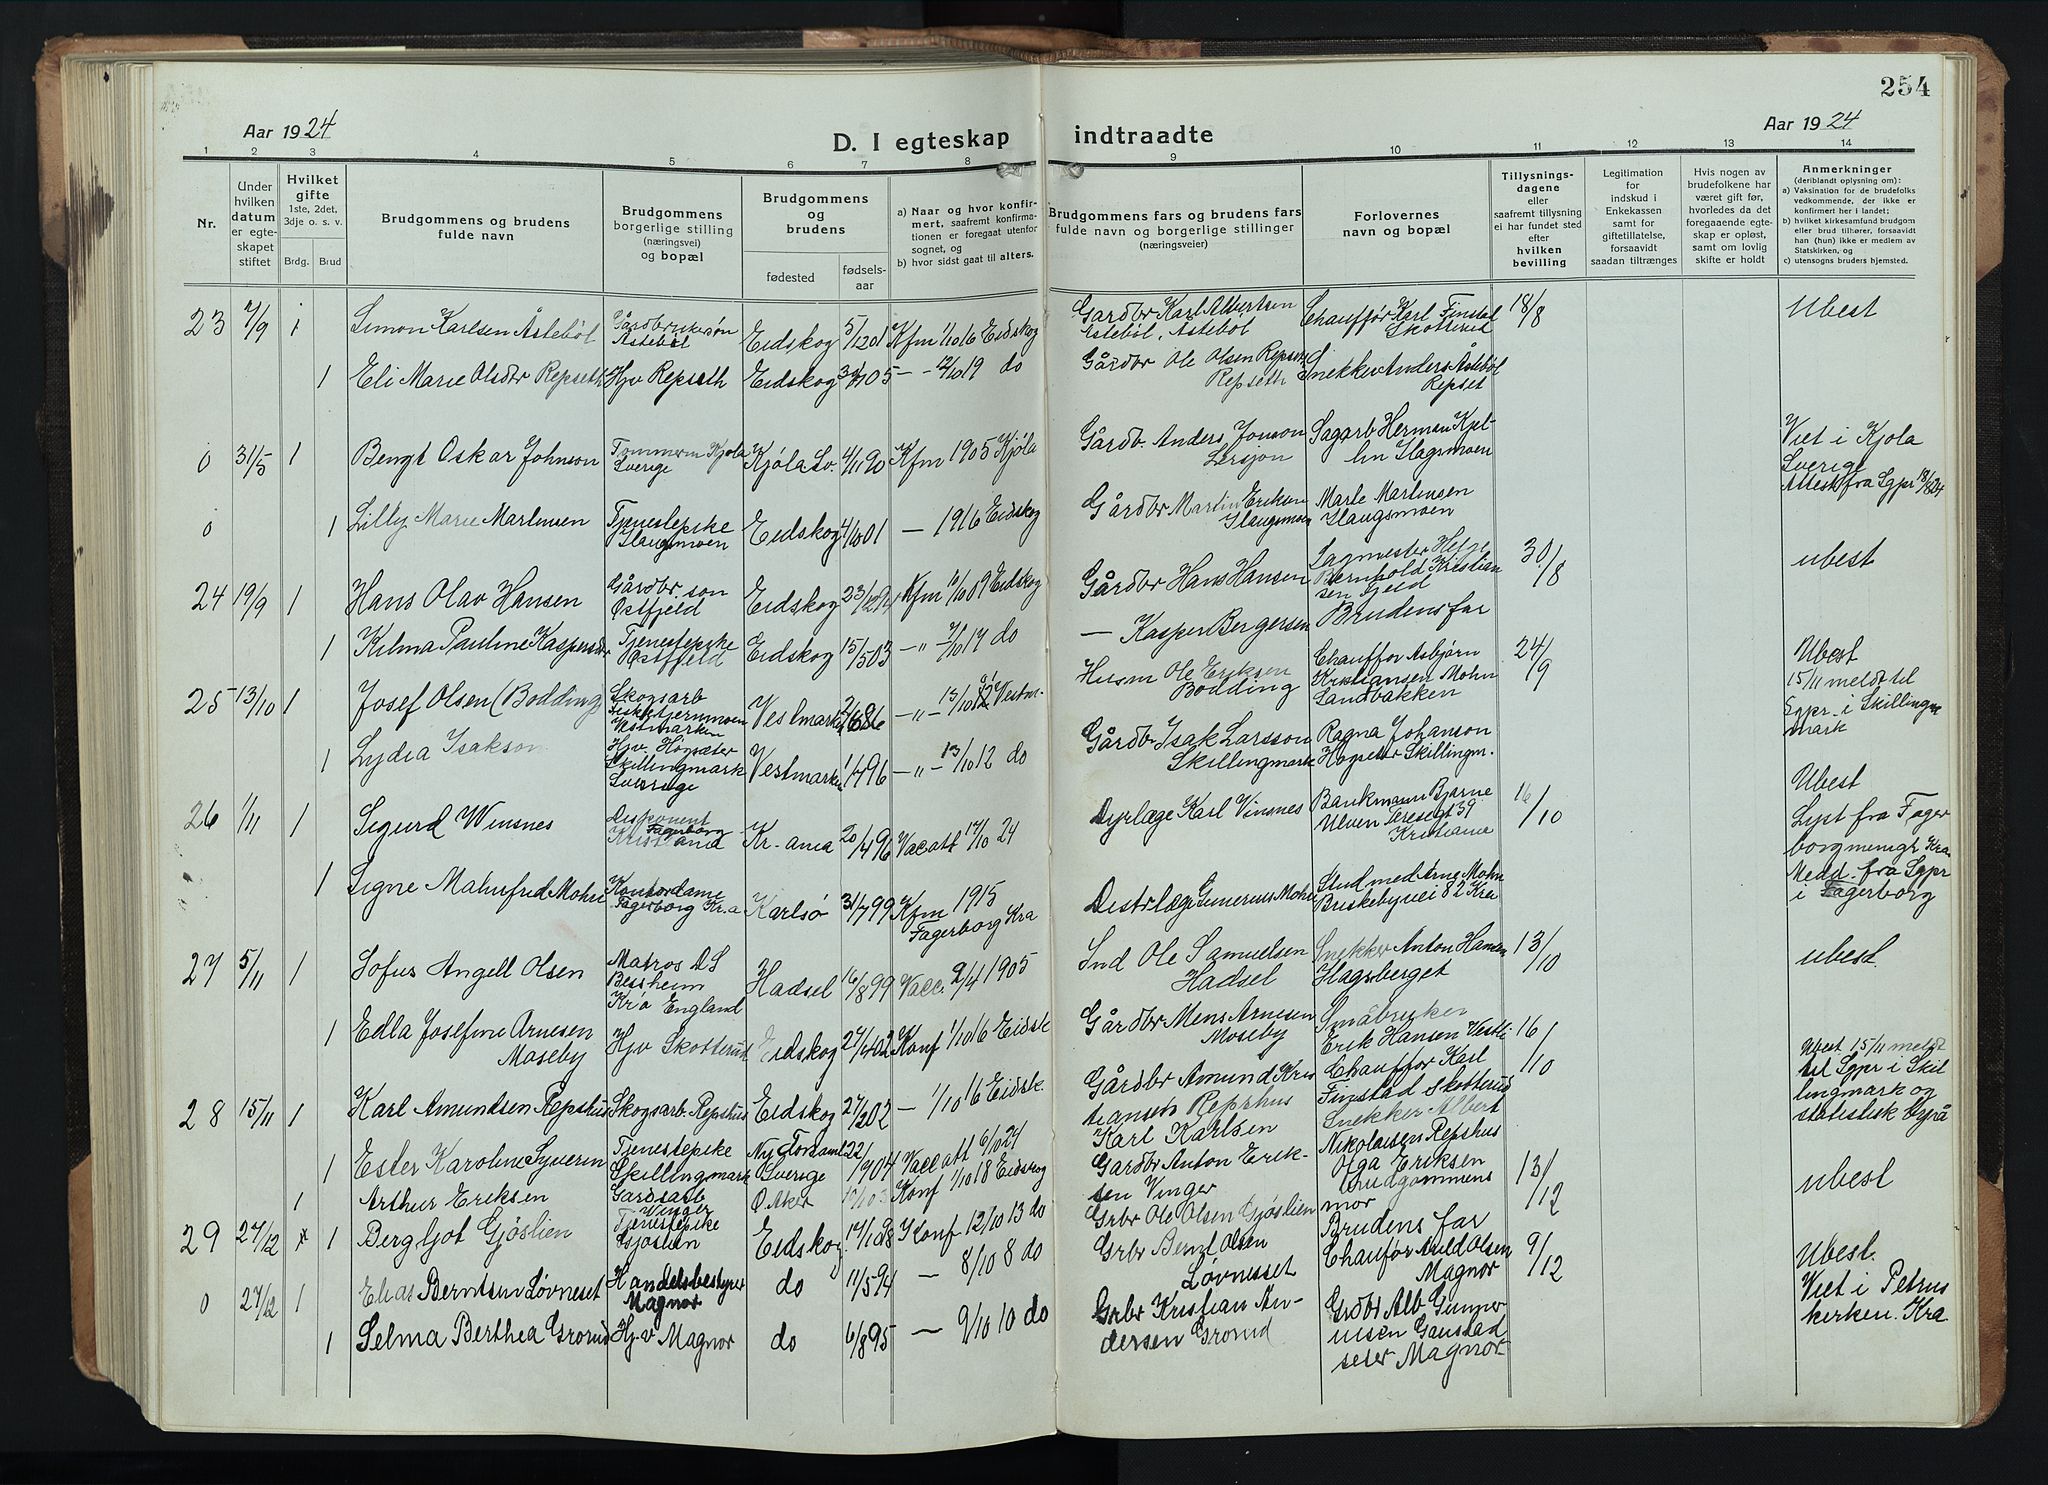 254
Aar 1924
D. I egteskap indtraadte
Aar 1924
1 2 3 4 5 6 7 8 9 10 11 12 13 14
Nr.
Under hvilken datum er egteskapet stiftet
Hvilket gifte 1ste, 2det, 3dje o. s. v.
Brdg. Brud
Brudgommens og brudens fulde navn
Brudgommens borgerlige stilling (næringsvei) og bopæl
Brudgommens og brudens
fødested
fødselsaar
a) Naar og hvor konfirmert, saafremt konfirmationen er foregaat utenfor sognet, og
b) hvor sidst gaat til alters.
Brudgommens fars og brudens fars fulde navn og borgerlige stillinger (næringsveier)
Forlovernes navn og bopæl
Tillysningsdagene eller saafremt tillysning ei har fundet sted efter hvilken bevilling
Legitimation for indskud i Enkekassen samt for giftetillatelse, forsaavidt saadan tiltrænges
Hvis nogen av brudefolkene har været gift før, hvorledes da det foregaaende egteskap er opløst, samt om lovlig skifte er holdt
Anmerkninger
(deriblandt oplysning om):
a) Vaksination for de brudefolks vedkommende, der ikke er konfirmert her i landet;
b) hvilket kirkesamfund brudgom eller brud tilhører, forsaavidt han (hun) ikke er medlem av Statskirken, og
c) utensogns bruders hjemsted.
23 7/9 1 Simon Karlsen Åstebøl Gårdbrukersøn Åstebøl Eidskog 5/12 01 Kfm 1/10 16 Eidskog Gardbr Karl Albertsen Åstebøl, Åstebøl Chauffør Karl Finstad Skotterud 18/8 Ubest
1 Eli Marie Olsdtr Repseth Hjv Repseth Eidskog 05 — 12/10 19 do Gårdbr Ole Olsen Repseth Snekker Anders Åstebøl Repset
0 31/5 1 Bengt Oskar Johnson Tømmerm Kjøla Sverige Kjøla Sv. 4/11 90 Kfm 1905 Kjøla Gårdb. Anders Jonson Sagarb Herman Kjellin Slagsmoen Viet i Kjøla Sverige Attest fra Sgpr 18/8 24
0 1 Lilly Marie Martinsen Tjenestepike Eidskog 4/10 01 — 1916 Eidskog Gårdbr Martin Eriksen Marle Martinsen
24 19/9 1 Hans Olav Hansen Gårdbr. søn Østfjeld Eidskog 23/12 94 Kfm /10 09 Eidskog Gårdbr Hans Hansen Sagmester Helge Bernhold Kristiansen Gjeld 30/8 ubest
1 Kilma Pauline Kaspersdtr Tjenestepike Østfjeld Eidskog 15/5 03 — " — 7/10 17 do — Kasper Bergersen Brudens far
25 13/10 1 Josef Olsen (Bodding) Skogsarb Vestmarken Vestmarken 86 — " — 13/10 Vestm. Husm Ole Eriksen Bodding Chauffør Asbjørn Kristiansen Mohn Sandbakken 24/9 Ubest 15/11 meldt til Sgpr. i Skillingmark
1 Lydia Isakson Hjv. Høgsæter Skillingmark Sverige Vestmarken 1/4 96 — " — 13/10 12 do Gårdbr Isak Larsson Skillingmark Ragna Johanson Høgseter Skillingm.
26 1/11 1 Sigurd Winsnes Disponent Fagerborg Kristiania Kr.ania 20/4 96 Vac att 17/10 24 Dyrlæge Karl Vinsnes Bankmann Bjarne Ulven Teresegt 39 Kristiania 16/10 Ubest Lyst fra Fagerborg menigh Kra Medd. fra Sgpr i Fagerborg
1 Signe Mohn Kontordame Fagerborg Kr.a Karlsø 31/7 99 Kfm 1915 Fagerborg Kra Distrlæge Gunerius Mohn Stud med Arne Mohn Briskebyvei 82 Kra
27 5/11 1 Sofus Angell Olsen Matros DS Bessheim Kr.a England Hadsel 16/8 99 Vacc. 2/4 1905 Ole Samuelsen Hadsel Snekker Anton Hansen Hagsberget 13/10 ubest
1 Edla Josefine Arnesen Moseby Hjv Skotterud Eidskog 27/4 02 Konf 1/10 16 Eidsk Gårdbr Mens Arnesen Moseby Småbruker Erik Hansen Vestli
28 15/11 1 Karl Amundsen Repshus Skogsarb. Repshus Eidskog 27/2 02 — 1/10 16 Eidsk. Gårdbr Amund Kristiansen Repshus Chauffør Karl Finstad Skotterud 16/10 Ubest 15/11 meldt til Sgpr i Skillingmark og statistisk byrå
1 Ester Karoline Syverin Tjenestepike Skillingmark Sverige 22/9 04 Vacc att 6/10 24 Karl Karlsen Snekker Albert Nikolaisen Repshus
1 Arthur Eriksen Gardsarb Vinger Ø Aker 03 Konf 1/10 18 Eidskog Gardbr Anton Eriksen Vinger Olga Eriksen brudgommens mor 13/12 ubest
29 27/12 1 Bergljot Gjøslien Tjenestepike Gjøslien Eidskog 17/1 98 Konf 12/10 13 do Grbr Ole Olsen Gjøslien Brudens far
0 27/12 1 Elias Berntsen Løvneset Handelsbestyrer Magnor do 11/5 94 — 8/10 8 do Grbr Bent Olsen Løvnesset Chauffør Olsen Magnor 9/12 Ubest. Viet i Petruskerken. Kra
1 Selma Berthea Grorud Hj.v Magnor do 6/8 95 — 9/10 10 do Grbr Kristian Andersen Grorud Grdbr Alb Gaustad seter Magnor